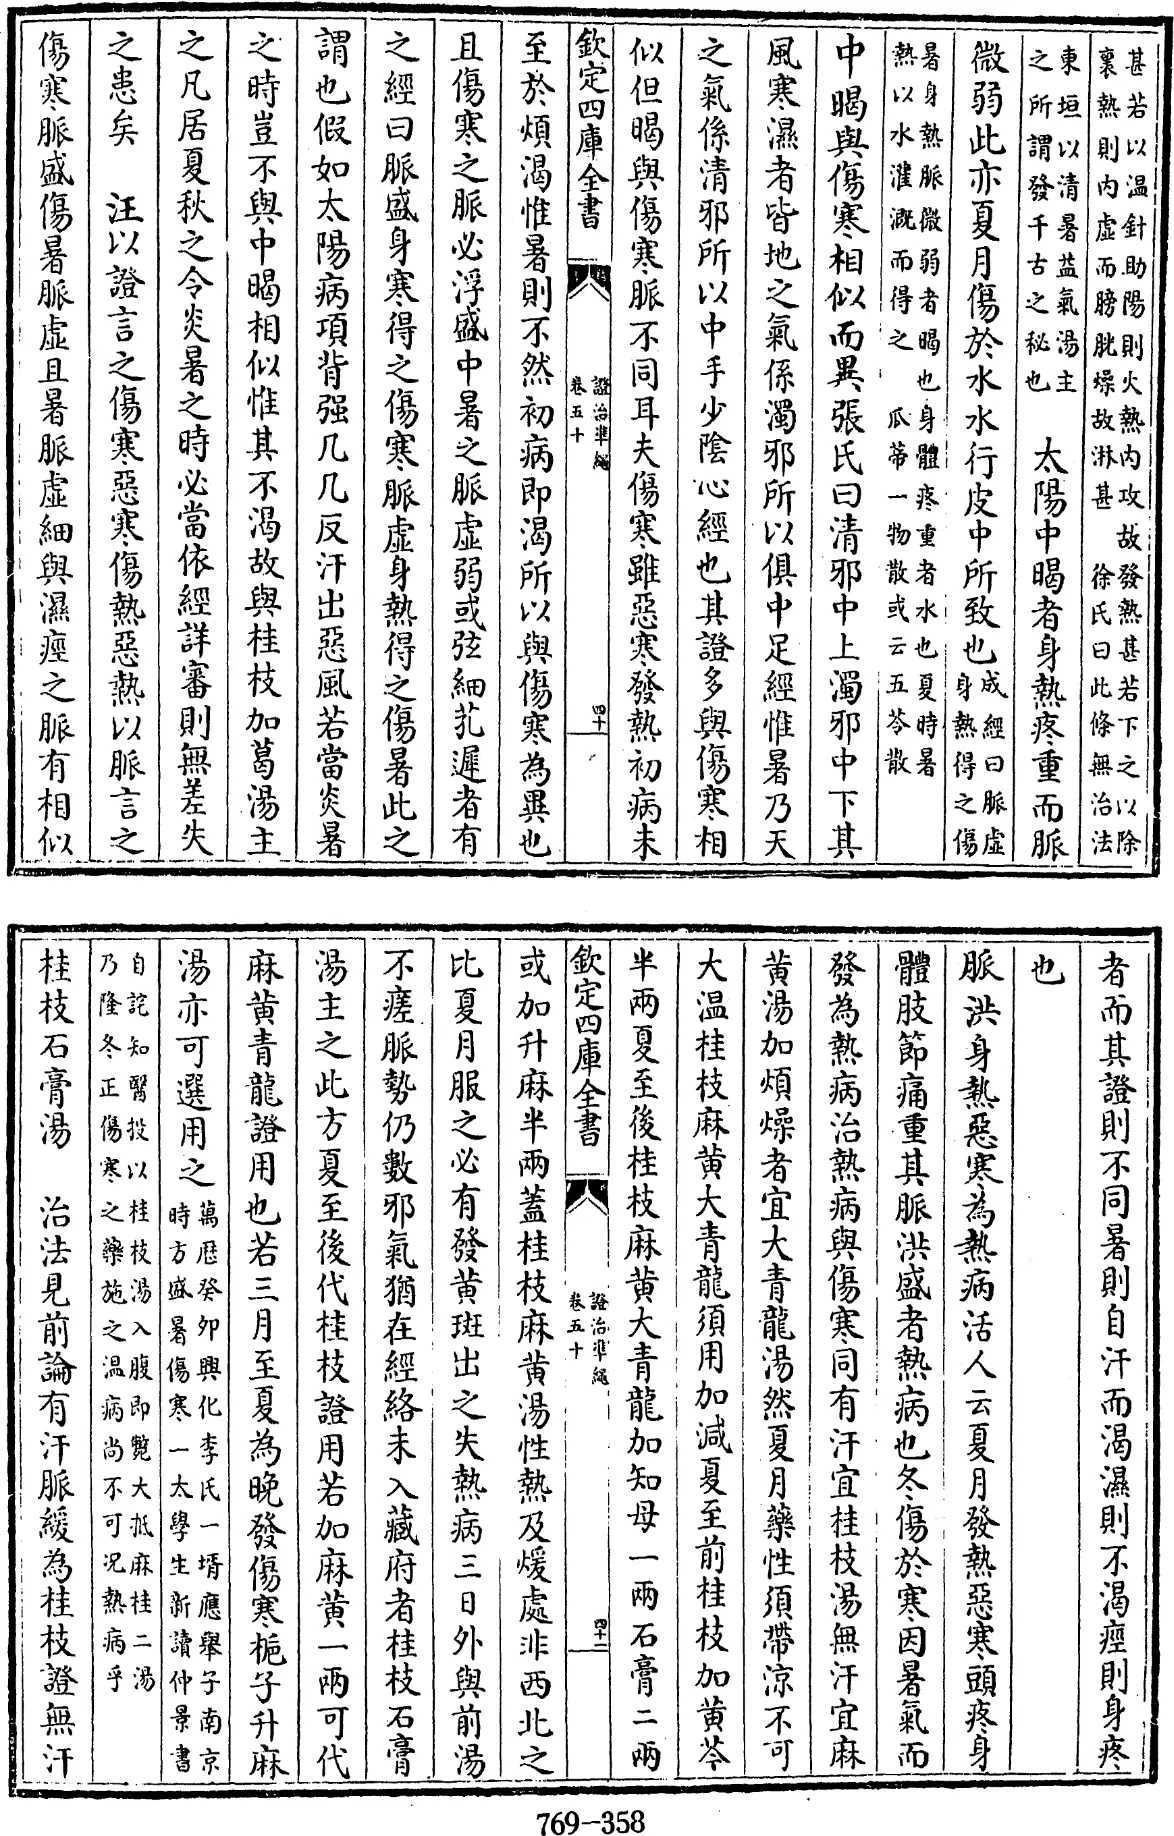 甚若以温針助陽則火熱内攻故發熱甚若下之以除
裏熱則内虛而膀胱燥故淋甚　徐氏曰此條無治法
東垣以清暑益氣湯主
之所謂發千古之秘也
太陽中暍者身熱疼重而脈
微弱此亦夏月傷於水水行皮中所致也
成經曰脈虛
身熱得之傷
暑身熱脈微弱者暍也身體疼重者水也夏時暑
熱以水灌溉而得之　瓜蒂一物散或云五苓散
中暍與傷寒相似而異張氏曰清邪中上濁邪中下其
風寒濕者皆地之氣係濁邪所以俱中足經惟暑乃天
之氣係清邪所以中手少陰心經也其證多與傷寒相
似但暍與傷寒脈不同耳夫傷寒雖惡寒發熱初病未
欽定四庫全書
證治準繩
卷五十
四十
至於煩渴惟暑則不然初病即渴所以與傷寒為異也
且傷寒之脈必浮盛中暑之脈虛弱或弦細芤遲者有
之經曰脈盛身寒得之傷寒脈虛身熱得之傷暑此之
謂也假如太陽病項背强几几反汗出惡風若當炎暑
之時豈不與中暍相似惟其不渴故與桂枝加葛湯主
之凡居夏秋之令炎暑之時必當依經詳審則無差失
之患矣　汪以證言之傷寒惡寒傷熱惡熱以脈言之
傷寒脈盛傷暑脈虛且暑脈虛細與濕痙之脈有相似
者而其證則不同暑則自汗而渴濕則不渴痙則身疼
也
脈洪身熱惡寒為熱病活人云夏月發熱惡寒頭疼身
體肢節痛重其脈洪盛者熱病也冬傷於寒因暑氣而
發為熱病治熱病與傷寒同有汗宜桂枝湯無汗宜麻
黄湯加煩燥者宜大青龍湯然夏月藥性須帶凉不可
大温桂枝麻黄大青龍須用加减夏至前桂枝加黄芩
半兩夏至後桂枝麻黄大青龍加知母一兩石膏二兩
欽定四庫全書
證治準繩
卷五十
四十一
或加升麻半兩蓋桂枝麻黄湯性熱及煖處非西北之
比夏月服之必有發黄斑出之失熱病三日外與前湯
不瘥脈勢仍數邪氣猶在經絡未入藏府者桂枝石膏
湯主之此方夏至後代桂枝證用若加麻黄一兩可代
麻黄青龍證用也若三月至夏為晚發傷寒梔子升麻
湯亦可選用之
萬厯癸卯興化李氏一壻應舉子南京
時方盛暑傷寒一太學生新讀仲景書
自詫知醫投以桂枝湯入腹即斃大抵麻桂二湯
乃隆冬正傷寒之藥施之温病尚不可况熱病乎
桂枝石膏湯　治法見前論有汗脈緩為桂枝證無汗
769-358